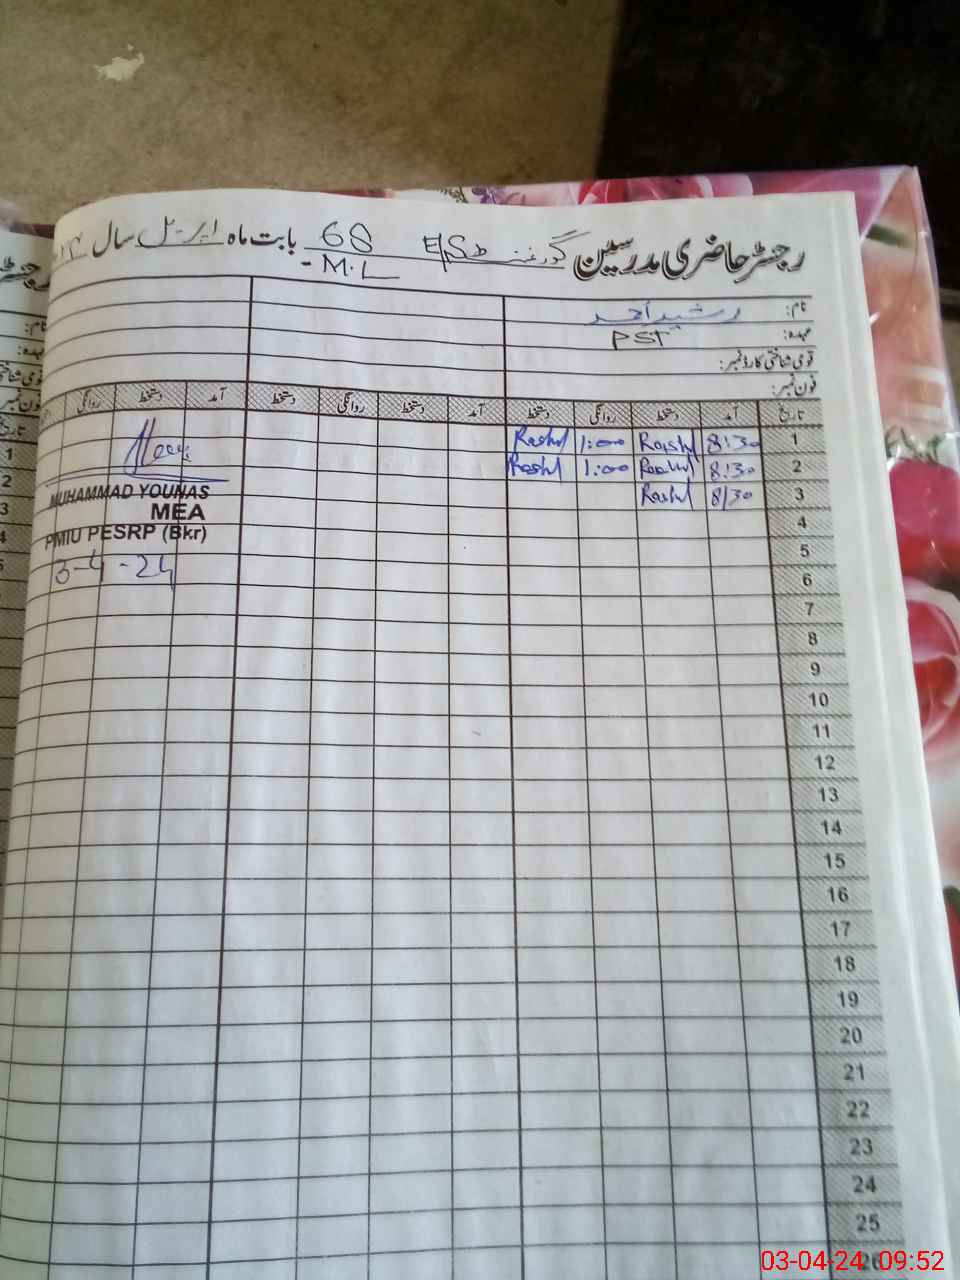 رجسٹر حاضری مدرسین گورنمنٹ E/S 68 بابت ماہ اپریل سال ۲۴
M.L
نام: رشید احمد
عہدہ: PST
قومی شناختی کارڈ نمبر:
فون نمبر:
تاریخ آمد دستخط روانگی دستخط آمد دستخط روانگی دستخط آمد دستخط روانگی
1 8:30 Rashid 1:00 Rashid
2 8:30 Rashid 1:00 Rashid
3 8/30 Rashid
MUHAMMAD YOUNAS
MEA
PMIU PESRP (Bkr)
3-4-24
4
5
6
7
8
9
10
11
12
13
14
15
16
17
18
19
20
21
22
23
24
25
26
03-04-24 09:52